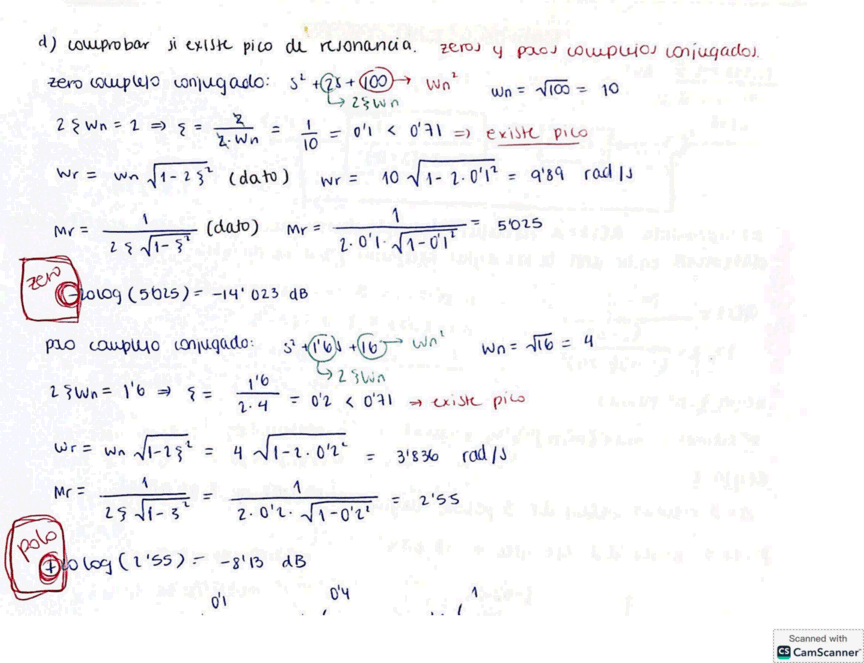 d) comprobar si existe pico de resonancia. zeros y polos complejos conjugados.
zero complejo conjugado: s² + 2s + 100 → Wn² Wn = √100 = 10
→ 2ξWn
2ξWn = 2 ⇒ ξ = 2/2·Wn = 1/10 = 0'1 < 0'71 ⇒ existe pico
Wr = Wn √1-2ξ² (dato) Wr = 10 √1-2·0'1² = 9'89 rad/s
Mr = 1/2ξ√1-ξ² (dato) Mr = 1/2·0'1·√1-0'1² = 5'025
zero
-20log(5'025) = -14'023 dB
polo complejo conjugado: s² + 1'6s + 16 → Wn² Wn = √16 = 4
→ 2ξWn
2ξWn = 1'6 ⇒ ξ = 1'6/2·4 = 0'2 < 0'71 → existe pico
Wr = Wn √1-2ξ² = 4 √1-2·0'2² = 3'836 rad/s
Mr = 1/2ξ√1-ξ² = 1/2·0'2·√1-0'2² = 2'55
polo
+20log(2'55) = -8'13 dB
0'1 0'4 1
Scanned with
CS CamScanner